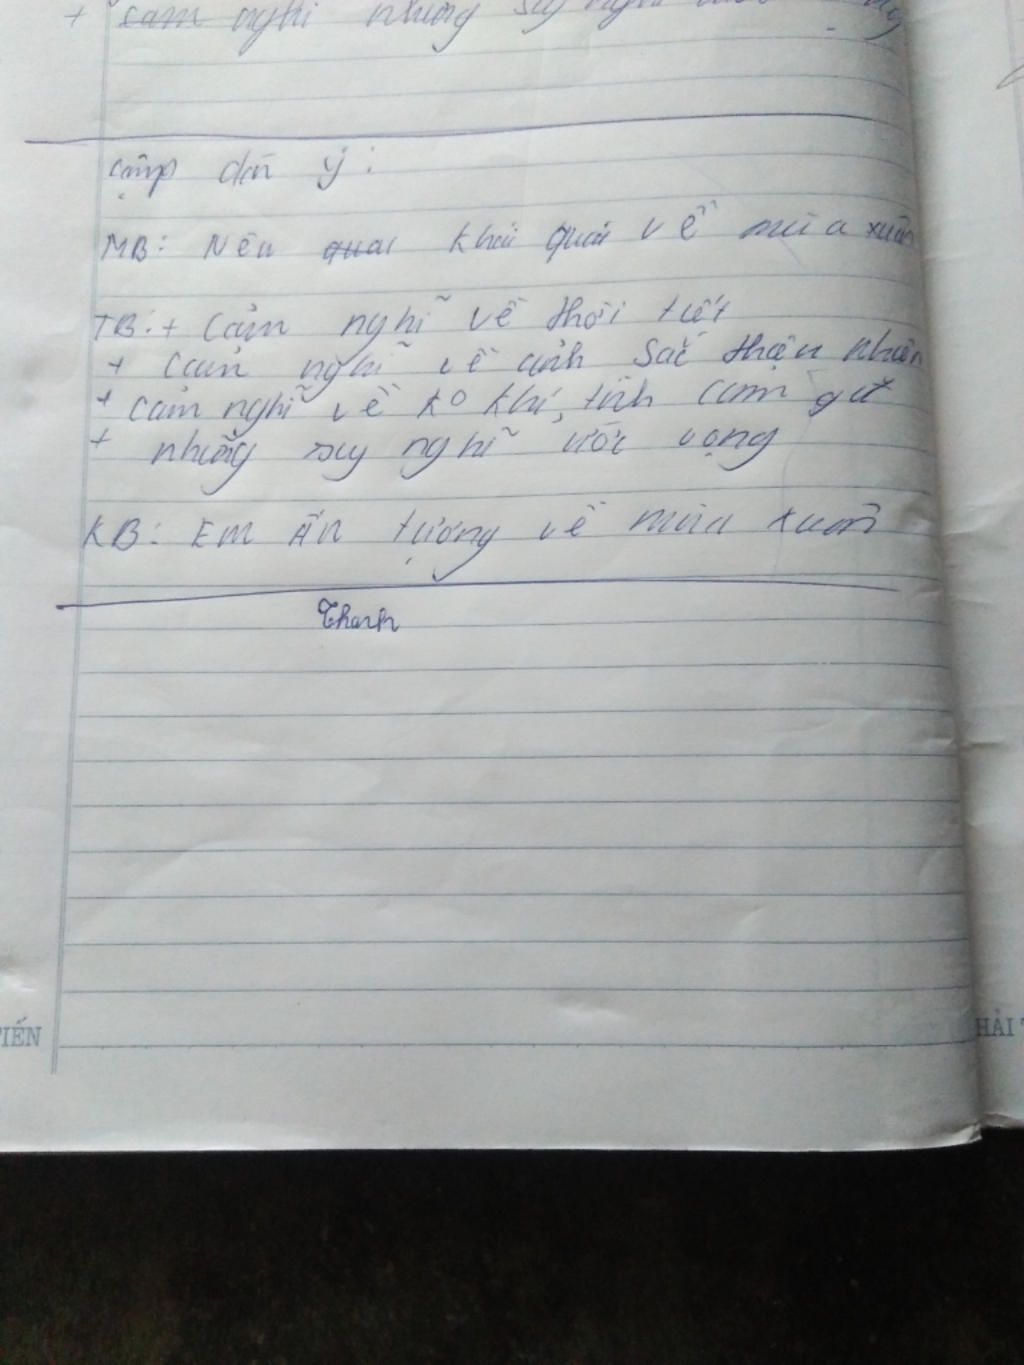 + cảm nghĩ những suy nghĩ
Lập dàn ý :
MB: Nêu quai khái quái về mùa xuân
TB: + Cảm nghĩ về thời tiết
+ Cảm nghĩ về cảnh sắc thiên nhiên
+ cảm nghĩ về ko khí, tình cảm gđ
+ những suy nghĩ ước vọng
KB: Em Ấn tượng về mùa xuân
Thanh
IẾN
HẢI T